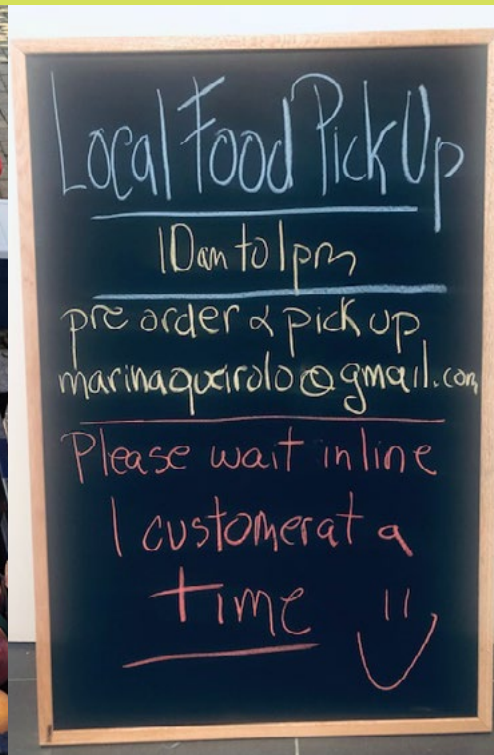 Local Food Pick Up
10am to 1pm
pre order & pick up
marinaqueirolo@gmail.com
Please wait in line
1 customer at a
time